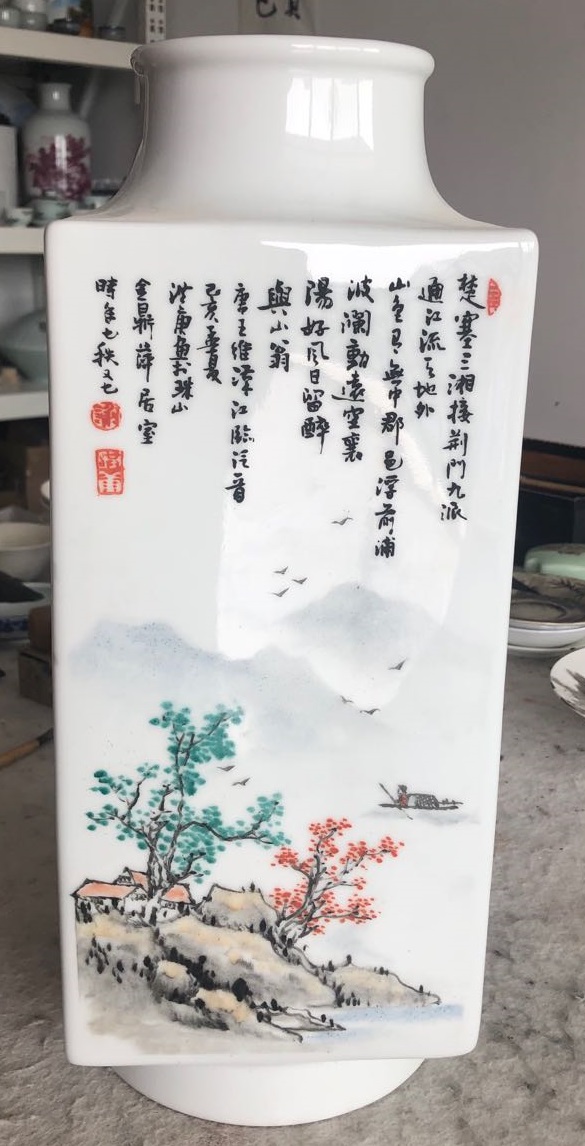 楚塞三湘接荆門九派
通江流天地外
山色有無中郡邑浮前浦
波瀾動遠空襄
陽好风日留醉
與山翁
唐王維漢江臨泛
己亥孟夏
於珠山
金鼎居室
時年七秩又七